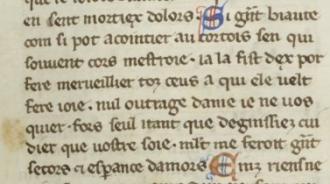 en sent mortiex dolors. Si gñt biaute
com si pot acointier au cortois sen qui
souuent cors mestroie. ia la fist dex por
fere merueillier toz ceus a qui ele uelt
fere ioie. nul outrage dame ie ne uos
quier. fors seul itant que deginssiez cui
dier que uostre soie. mlt me feroit gñt
secors ⁊ esperance damors Einz riens ne